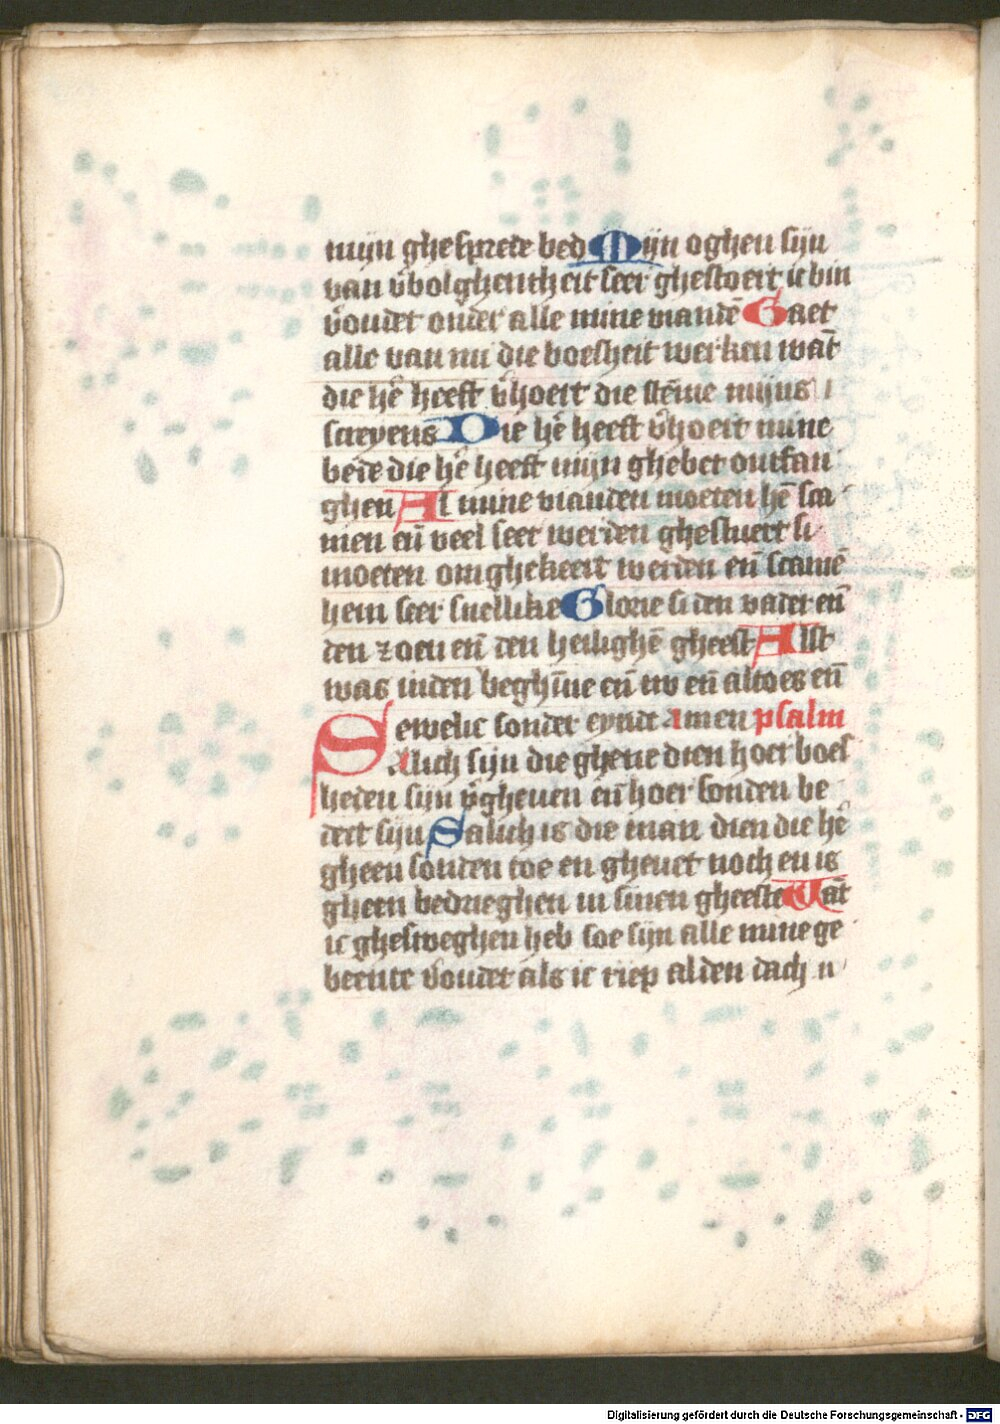 mijn ghespreide bed Mijn oghen sijn
van v̄bolghentheit seer ghestoert ic bin
v̄oudet onder alle mine viandē Gaet
alle van mi die boesheit werken wāt
die hē heeft v̄hoert die stēme mijns
screyens Die hē heeft v̄hoert mine
bede die hē heeft mijn ghebet ontfan
ghen Al mine vianden moeten hē sca
men en̄ veel seer werden ghestuert si
moeten omghekeert werden en̄ scamē
hem seer snellike Glorie si den vader en̄
den zoen en̄ den heilighē gheest Alst
was inden beghīne en̄ nv en̄ altoes en̄
ewelic sonder eynde amen psalm
Salich sijn die ghene dien hoer boes
heden sijn v̄gheuen en̄ hoer sonden be
dect sijn Salich is die man dien die hē
gheen sonden toe en gheuet noch en is
gheen bedrieghen in sinen gheeste Wāt
ic ghesweghen heb soe sijn alle mine ge
beente v̄oudet als ic riep al den dach
Digitalisierung gefördert durch die Deutsche Forschungsgemeinschaft - DFG